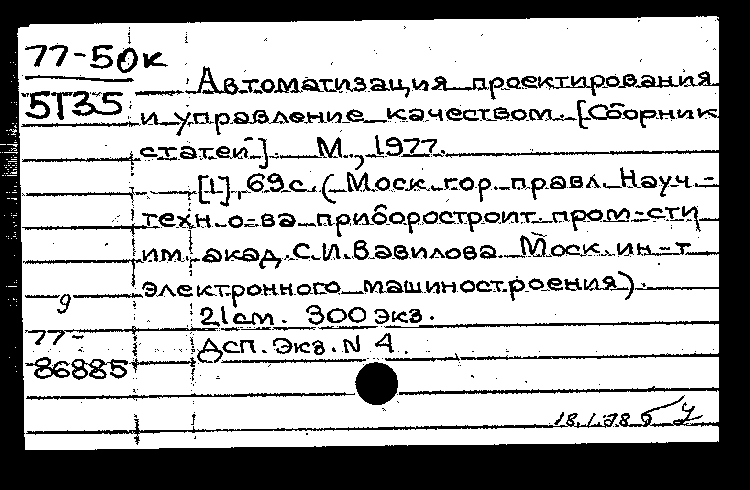 77-50к
5135
Автоматизация проектирования
и управление качеством. [Сборник
статей]. М., 1977.
[1], 69с. (Моск. гор. правл. Науч.-
техн. о-ва приборостроит. пром-сти
им. акад. С.И. Вавилова. Моск. ин-т
электронного машиностроения).
21см. 300 экз.
Дсп. Экз. N 4.
9
77-
86885
18.1.78